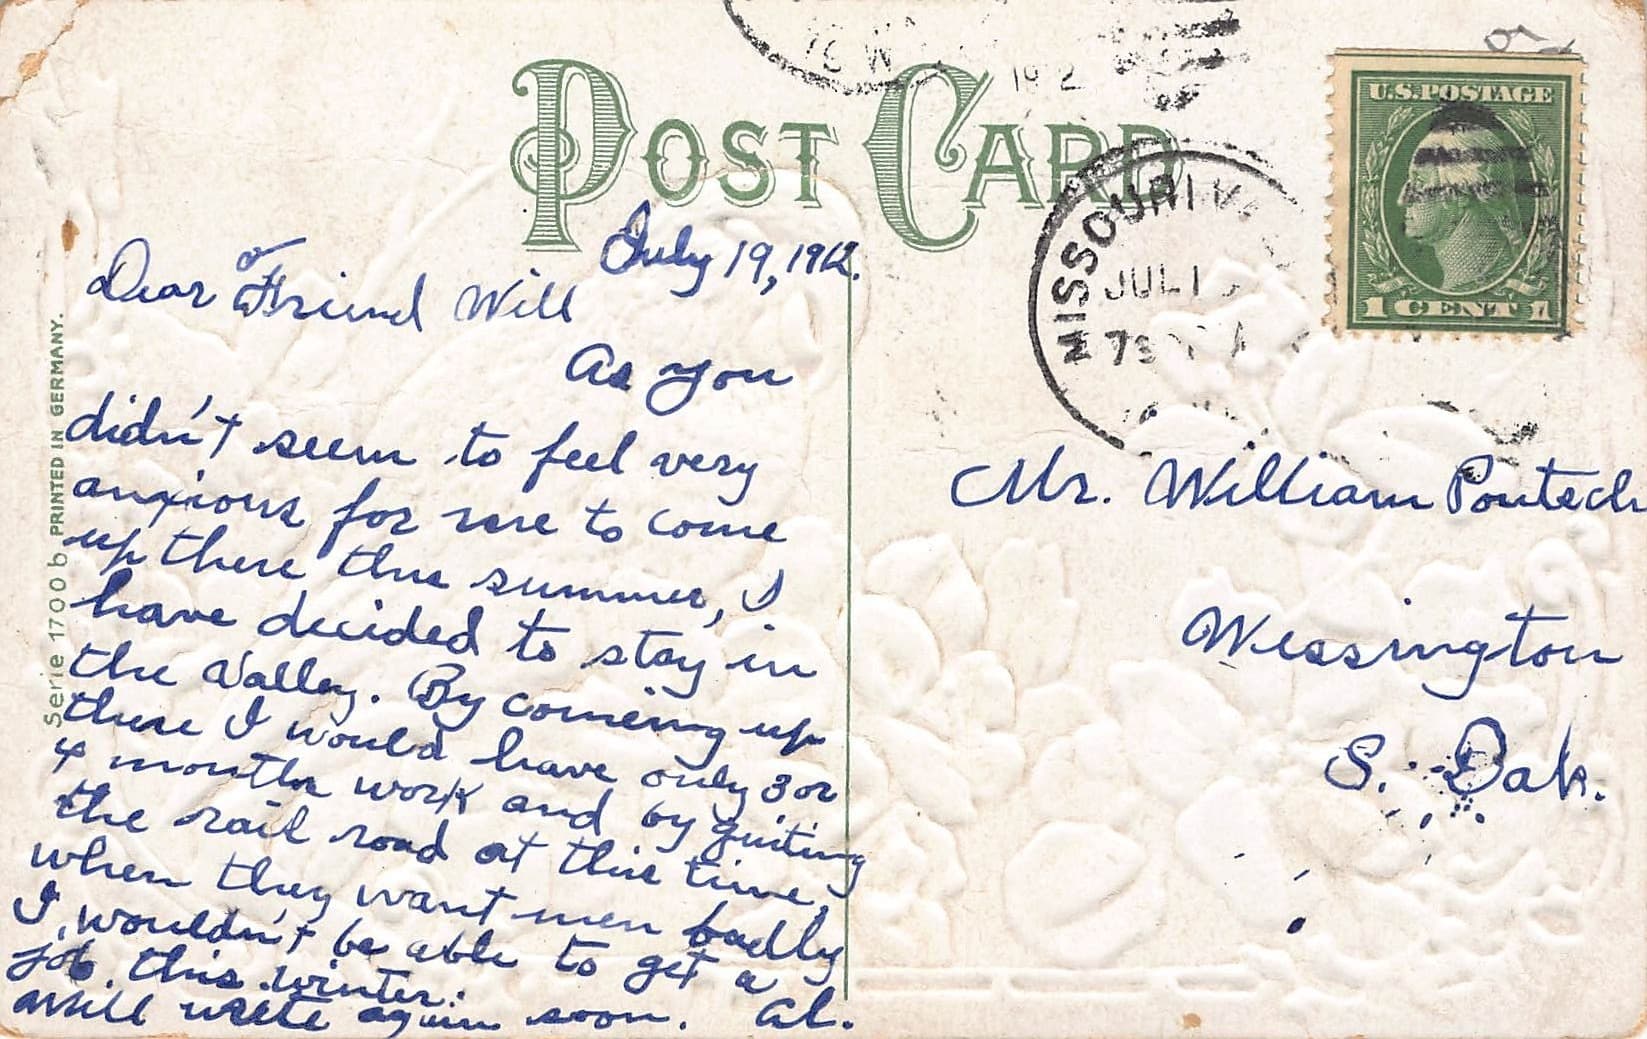 POST CARD
U.S. POSTAGE
1 CENT 1
MISSOURI V
JUL 1
Serie 1700 b PRINTED IN GERMANY.
July 19, 1912.
Dear Friend Will
As you
didn't seem to feel very
anxious for me to come
up there this summer, I
have decided to stay in
the Valley. By comeing up
there I would have only 3 or
4 months work and by quiting
the rail road at this time,
when they want men badly
I wouldn't be able to get a
job this winter.
Will write again soon. Al.
Mr. William Poutsch
Wessington
S. Dak.